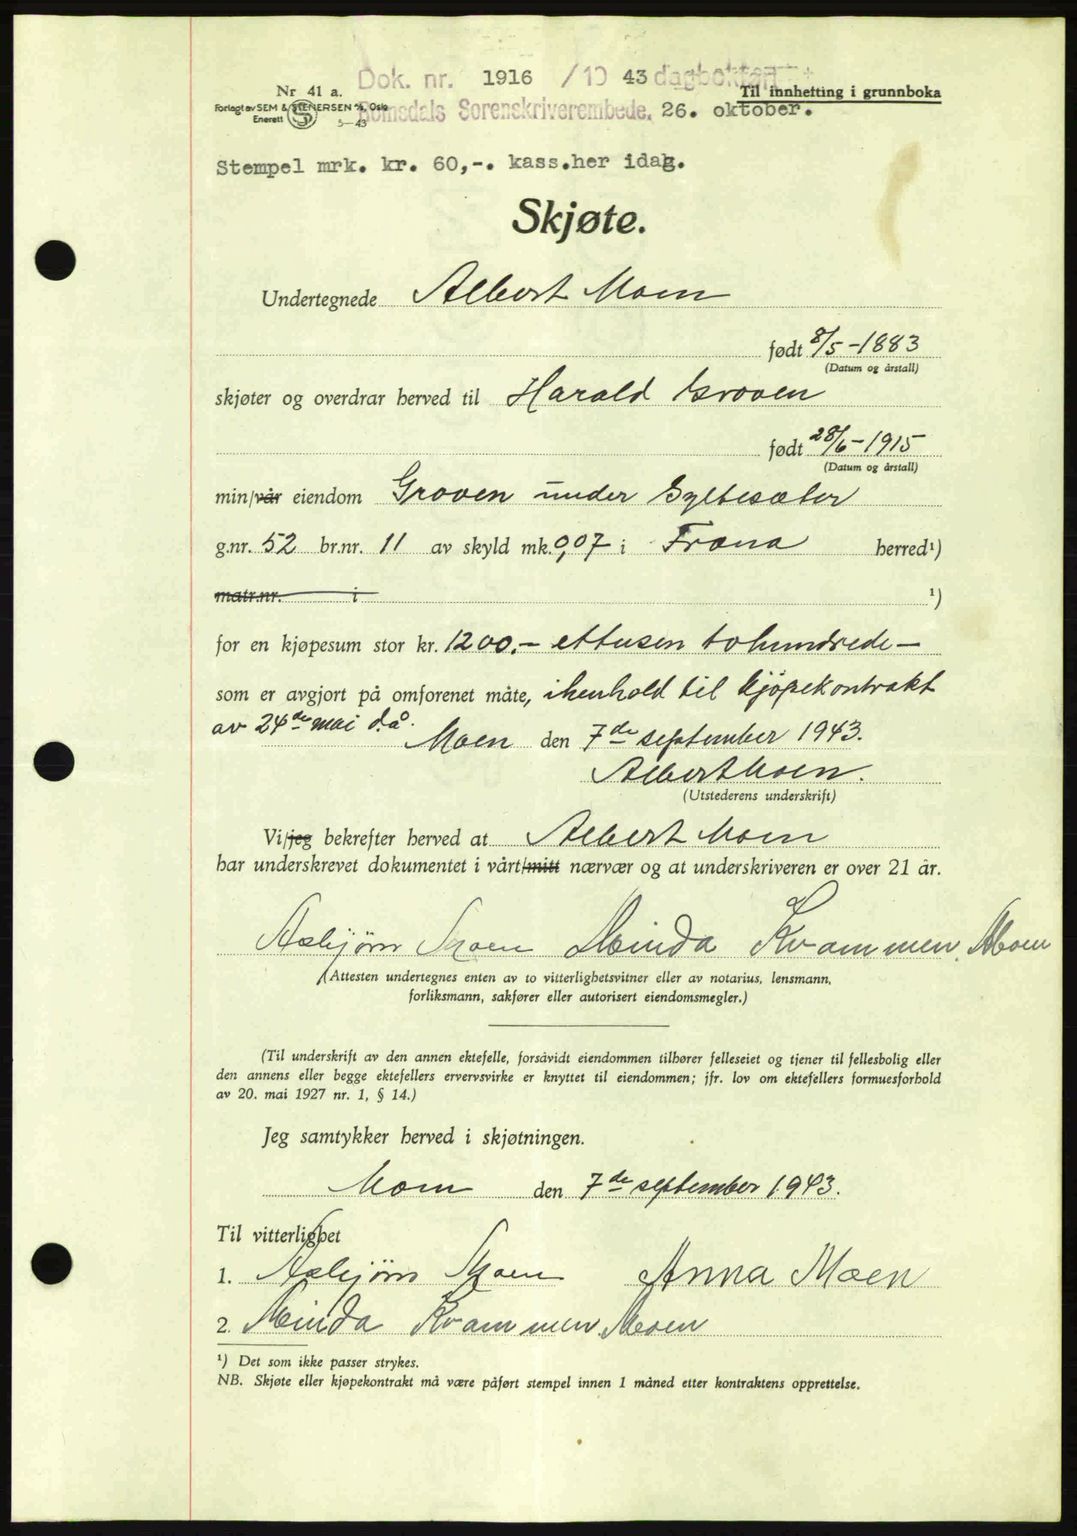 Dok. nr. 1916 /19 43 dagbokført
Nr 41 a.
Til innhefting i grunnboka
Forlagt av SEM & STENERSEN A/S, Oslo
Romsdals Sorenskriverembede, 26. oktober.
Enerett S 5-43
Stempel mrk. kr. 60,-. kass.her idag.
Skjøte.
Undertegnede Albert Moen
født 8/5-1883
(Datum og årstall)
skjøter og overdrar herved til Harald Groven
født 28/6-1915
(Datum og årstall)
min/vår eiendom Groven under Syltesæter
g.nr. 52 br.nr. 11 av skyld mk. 0,07 i Fræna herred¹)
matr.nr. i ¹)
for en kjøpesum stor kr. 1200.- ettusen tohundrede-
som er avgjort på omforenet måte, ihenhold til kjøpekontrakt
av 24de mai d.å.
Moen den 7de september 1943.
Albert Moen.
(Utstederens underskrift)
Vi/jeg bekrefter herved at Albert Moen
har underskrevet dokumentet i vårt/mitt nærvær og at underskriveren er over 21 år.
Asbjørn Moen Minda Kvammen Moen
(Attesten undertegnes enten av to vitterlighetsvitner eller av notarius, lensmann,
forliksmann, sakfører eller autorisert eiendomsmegler.)
(Til underskrift av den annen ektefelle, forsåvidt eiendommen tilhører felleseiet og tjener til fellesbolig eller
den annens eller begge ektefellers ervervsvirke er knyttet til eiendommen; jfr. lov om ektefellers formuesforhold
av 20. mai 1927 nr. 1, § 14.)
Jeg samtykker herved i skjøtningen.
Moen den 7de september 1943.
Til vitterlighet
1. Asbjørn Moen Anna Moen
2. Minda Kvammen Moen
¹) Det som ikke passer strykes.
NB. Skjøte eller kjøpekontrakt må være påført stempel innen 1 måned etter kontraktens opprettelse.